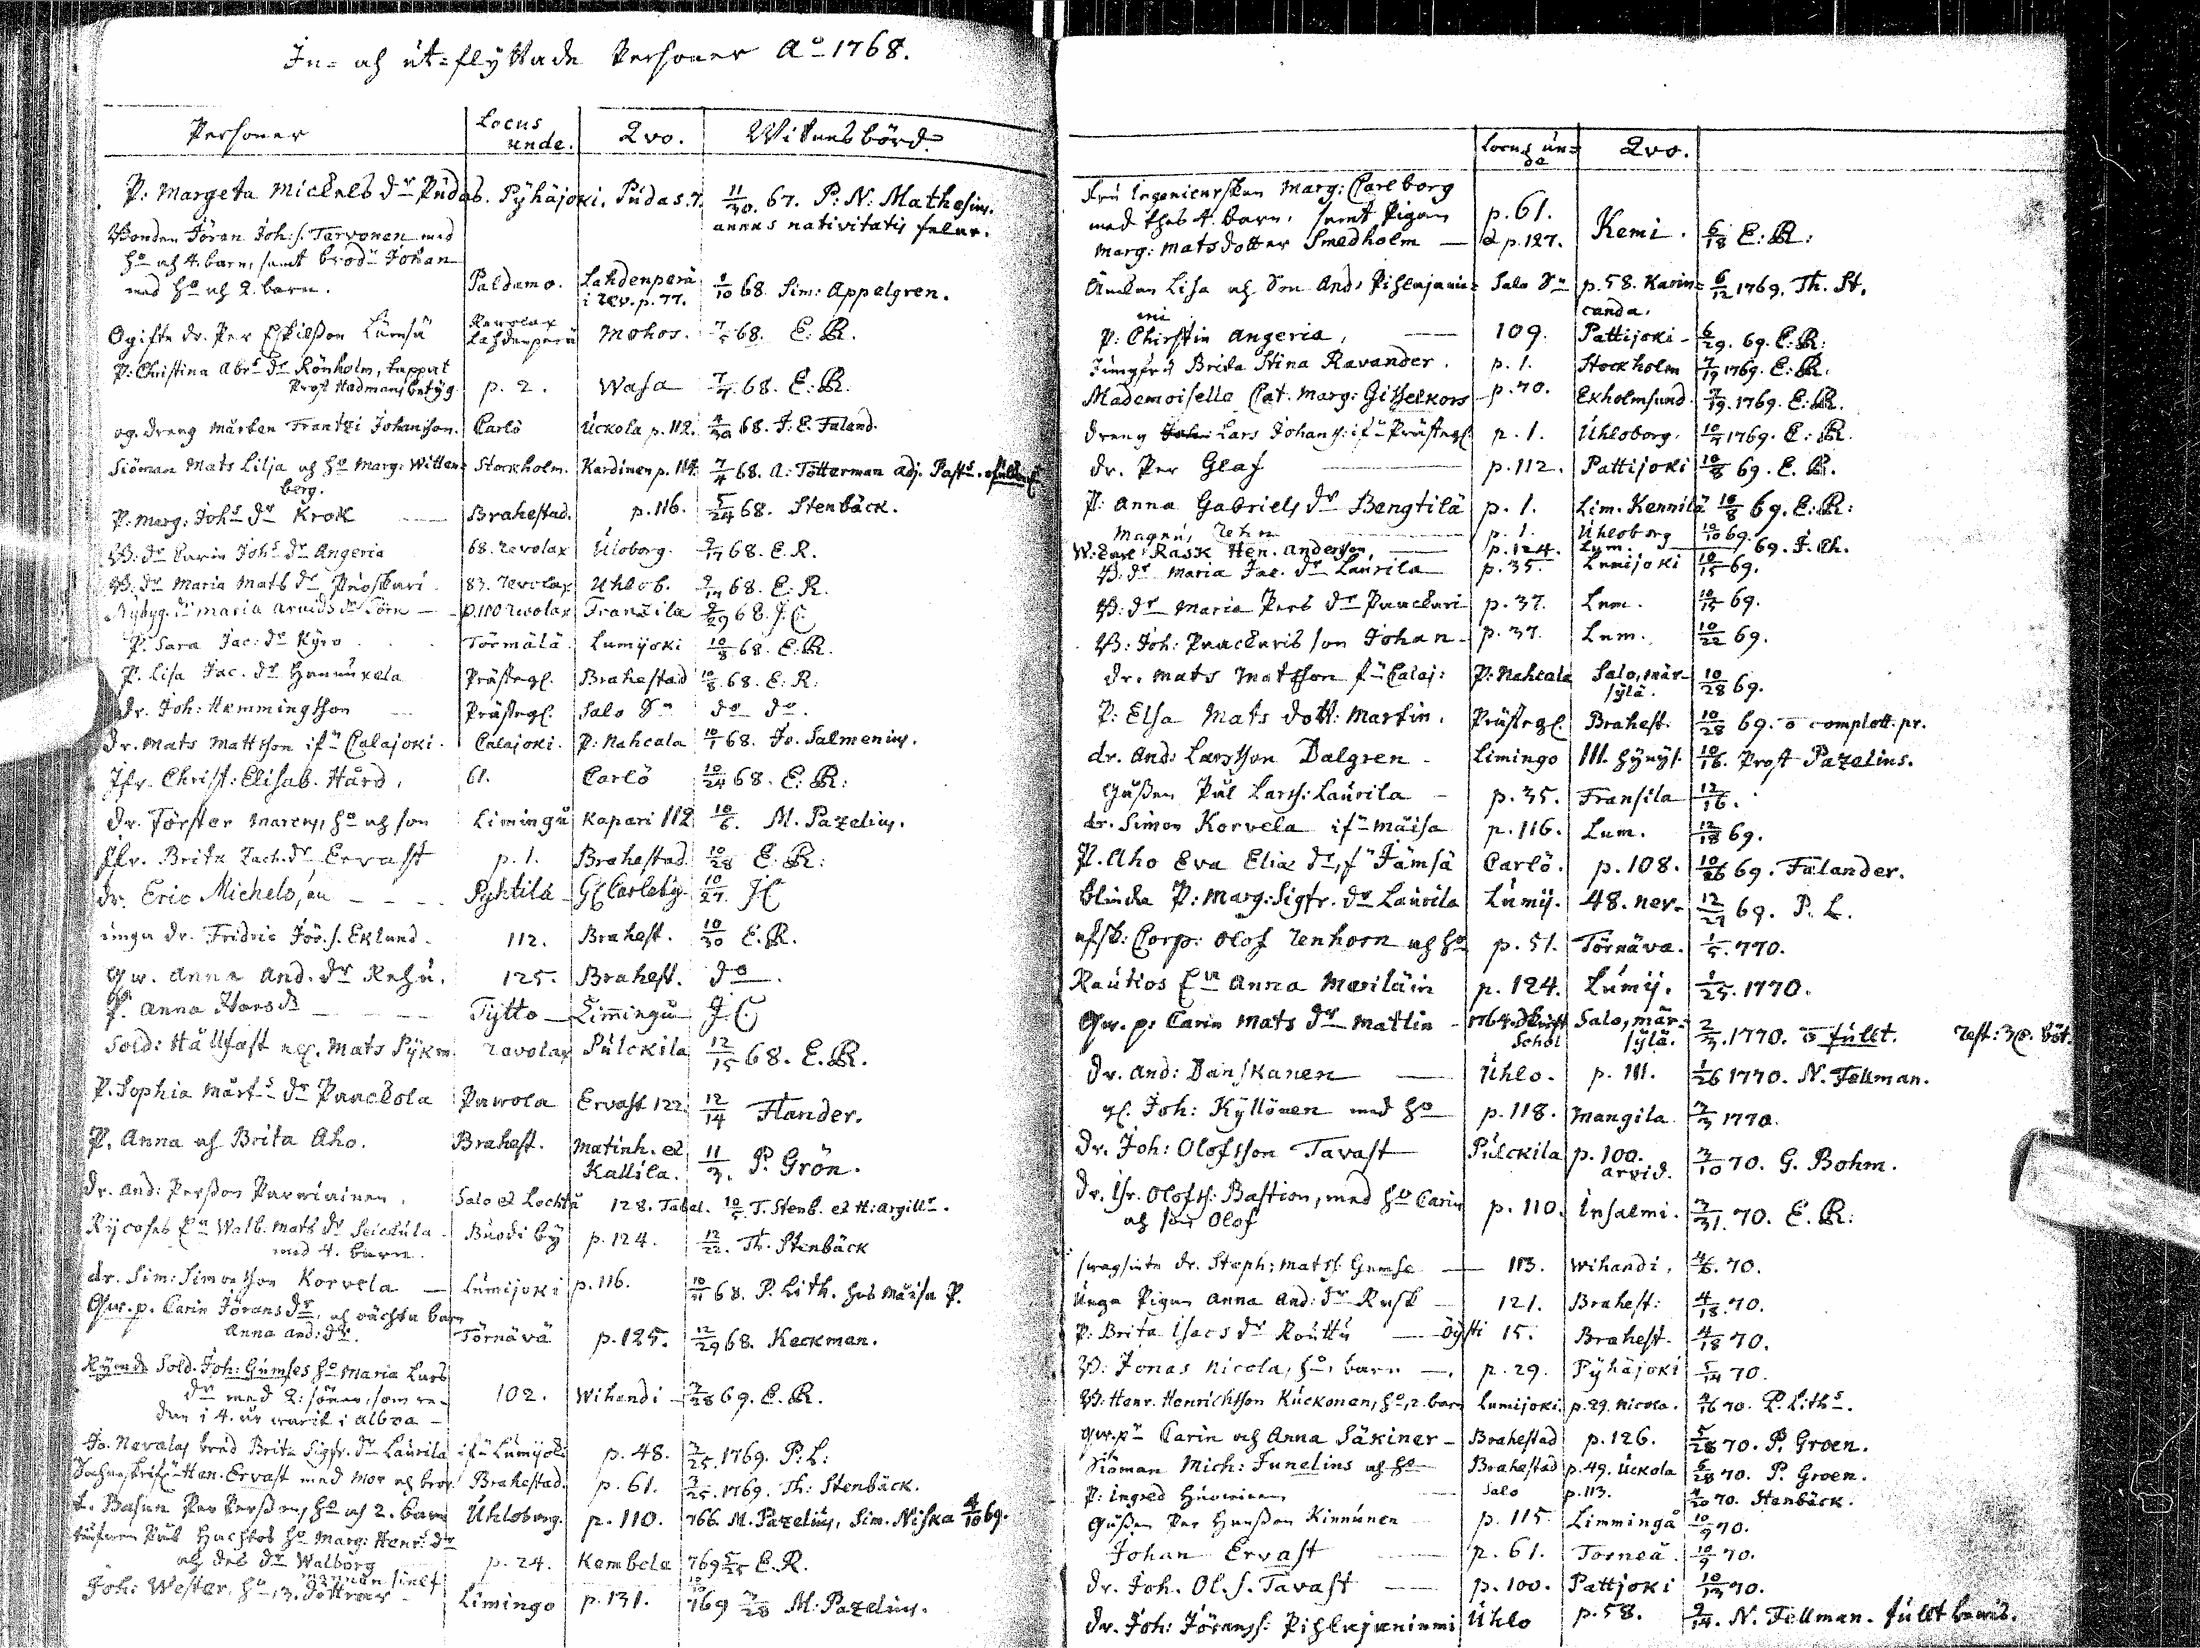 In- och út-flyttade Personer Ao 1768.
Personer Locus unde. Qvo. Witnesbörd
P: Margeta Mickels dr Pudas. Pÿhäjoki. Pudas. 7. 11/30. 67. P: N: Mathesius.
annus nativitatis felar.
Bonden Jöran Joh: s. Tarvonen med
ho och 4. barn, samt brodn Johan
med ho och 2. barn. Paldamo. Lahdenperä i Rev. p. 77. 1/10 68. Sim: Appelgren.
Ogifte dr. Per Eskilsson Lämsä Revolax Lahdenperä Mohos. 7/5 68. E: R.
P: Christina Abrs dr Rönholm, tappat
Prost Hadmans betyg. p. 2. Wasa 7/4. 68. E: R.
og. dreng mården Frantzi Johansson. Carlö Uckola p. 112. 4/30 68. J. E. Faland.
Siöman Mats Lilja och ho Marg: Witten-
berg. Stockholm. Kardinen p. 114. 7/4 68. A: Tötterman adj. Past:
P. Marg: Johs dr Krok Brahestad. p. 116. 5/24 68. Stenbäck.
B: dr Carin Johs dr Angeria 68. Revolax Úloborg. 9/17 68. E. R.
B: dr Maria Mats dr Pruskari 83. Revolax Uhlob. 9/19 68. E. R.
Nybyg. dr Maria Arvids dr Törn p. 110 Revolax Franzila 9/29 68. J. C.
P. Sara Jac: dr Kyrö Törmälä. Lumijoki 10/8 68. E: R.
P. Lisa Jac. dr Hannuxela Prästegl. Brahestad 10/8. 68. E: R:
dr. Joh: Hemmingsson Prästegl. Salo Sn do do.
dr. Mats Mattsson ifn Calajoki. Calajoki. P: Nahcala 10/1 68. Jo. Salmenius.
Jfr. Christ: Elisab. Hård. 61. Carlö 10/24 68. E: R:
Dr. Förster Marcus, ho och son Limingå Kapari 112 10/6. M. Pazelius.
Jfr. Brita Zach. dr Ervast p. 1. Brahestad. 10/28 E: R:
dr. Eric Michels,son Pyhtilä Gl Carleby 10/27. J C
unga dr. Fridric Jör. s. Eklund. 112. Brahest. 10/30 E. R.
Qw. Anna And. dr Rehu. 125. Brahest. do.
P. Anna Hans dr Tytto Limingu J. C.
Sold: Hållfast Mats Pykm. Revolax Pulckila 12/15 68. E. R.
P. Sophia Mårts dr Paackola Pawola Ervast 122. 12/14 Flander.
P. Anna och Brita Aho. Brahest. Matinh. et Kallila. 11/3. P: Grön.
dr. And: Persson Parviainen. Salo et Lochtå 128. Tabal. 10/5. T. Stenb. et H: Argill.
Rycofas En Walb. Mats dr Seickula
med 4. barn. Buodi by p. 124. 12/22. Th. Stenbäck
dr. Sim: Simonsson Korvela Lumijoki p. 116. 10/11 68. P. Lith. hos Maisa P.
Qw. p. Carin Jörans dr, och oächta barn
Anna And: dr. Törnävä p. 125. 12/29 68. Keckman.
Rymde Sold. Joh: Gumses ho Maria Lars
dr med 2: söner, som re-
dan i 4. år warit i Alboa 102. Wihandi 2/28 69. E. R.
Jo. Navalas brud Brita Sigfr. dr Laurila ifn Lumijoki p. 48. 2/25. 1769. P: L:
Hen. Ervast med mor och bror Brahestad. p. 61. 3/25. 1769. Th: Stenbäck.
t. Basun Per Persson, ho och 2. barn Uhloborg. p. 110. 766. M. Pazelius, Sim. Niska 4/10 69.
Huchtos ho Marg: Henrs dr
och des dr Walborg p. 24. Kembela 769 5/25 E. R.
mannen sielf
Joh: Wester. ho, 3. döttrar Limingo p. 131. 769 3/28 M: Pazelius.
Locus unde Qvo.
Fru Ingenieurskan Marg: Carlborg
med thes 4. barn, samt Pigan p. 61.
Marg: Matsdotter Smedholm & p. 127. Kemi. 6/18 E: R:
Änckan Lisa och Son And: Pihlajanie-
mi Salo Sn p. 58. Karin-
canda. 6/12 1769. Th. St.
P: Chirstin Angeria. 109. Pattijoki 6/29. 69. E: R:
Jungfru Brita Stina Ravander. p. 1. Stockholm 7/19 1769. E: R.
Mademoiselle Cat. Marg: Githelkors p. 70. Exholmsund. 7/19. 1769. E: R.
Dreng Lars Johans: ifn Prästegl. p. 1. Úhloborg. 10/7 1769. E: R.
dr. Per Glaf p. 112. Pattijoki 10/8 69. E. R.
P: Anna Gabriels dr Bengtilä p. 1. Lim. Kennilä 10/8 69. E: R:
Magnus Rehn p. 1. Úhloborg 10/10 69.
W: Carl: Rask Hen. Andersson, p. 124. Lum. 69. J. Ch.
B: dr Maria Jac. dr Laurila p. 35. Lumijoki 10/15 69.
B: dr Maria Pers dr Paackari p. 37. Lum. 10/15 69.
B: Joh: Paackaris son Johan p. 37. Lum. 10/22 69.
dr. Mats Matsson fn Calaj: P: Nahcala Salo, Mär-
sylä. 10/28 69.
P: Elsa Mats dott: Martin. Prästegl. Brahest. 10/28 69. o complott. pr.
dr. And: Larsson Dalgren Limingo 111. Hÿnys. 10/16. Prost Pazelius.
Gossen Pål Lars: Laurila p. 35. Fransila 12/16.
dr. Simon Korvela ifn Maisa p. 116. Lum. 12/18 69.
P. Aho Eva Eliæ dr, fn Jämsä Carlö. p. 108. 10/26 69. Falander.
blinda P: Marg: Sigfr. dr Laurila Lumij. 48. 12/27 69. P. L.
afsk: Corp: Olof Renhorn och ho p. 51. Törnäva. 1/5. 770.
Rautios En Anna Mariläin p. 124. Lumij. 1/25. 1770.
Qw. p: Carin Mats dr Matlin 1764. Salo, mär-
sylä. 2/3. 1770. o fullt. rest: 3
dr. And: Danskanen Úhlo. p. 111. 1/26 1770. N. Fellman.
gl. Joh: Kyllönen med ho p. 118. Mangila. 3/3 1770.
Dr. Joh: Olofsson Tavast Pulckila p. 100.
arvid. 3/10 70. G. Bohm.
dr. Isr. Olofs: Bastion, med ho Carin
och son Olof p. 110. Insalmi. 3/31. 70. E. R:
dr. Steph: Matss: Gumse 113. Wihandi. 4/6. 70.
Unga Pigan Anna And: dr Rask 121. Brahest: 4/18. 70.
P: Brita Isacs dr Routtu Öysti 15. Brahest. 4/18 70.
B: Jonas Nicola, ho, barn p. 29. Pÿhäjoki 5/14 70.
B: Henr. Henricksson Kuckonen, ho, 2. barn Lumijoki p. 29. Nicola. 4/16 70. P. Liths.
Qw. pn Carin och Anna Säkiner Brahestad p. 126. 5/28 70. P. Groen.
Siöman Mich: Junelius och ho Brahestad p. 49. Uckola 6/28 70. P. Groen.
P: Ingred Huovinen Salo p. 113. 4/20 70. Stenbäck.
Gossen Per Hansson Kinnunen p. 115. Limmingå 10/9 70.
Johan Ervast p. 61. Torneå. 10/9 70.
Dr. Joh. Ol. s. Tavast p. 100. Pattjoki 10/13 70.
Dr. Joh: Jöranss: Pihlajaniemi Úhlo p. 58. 9/14. N. Fellman. fullt bewis.